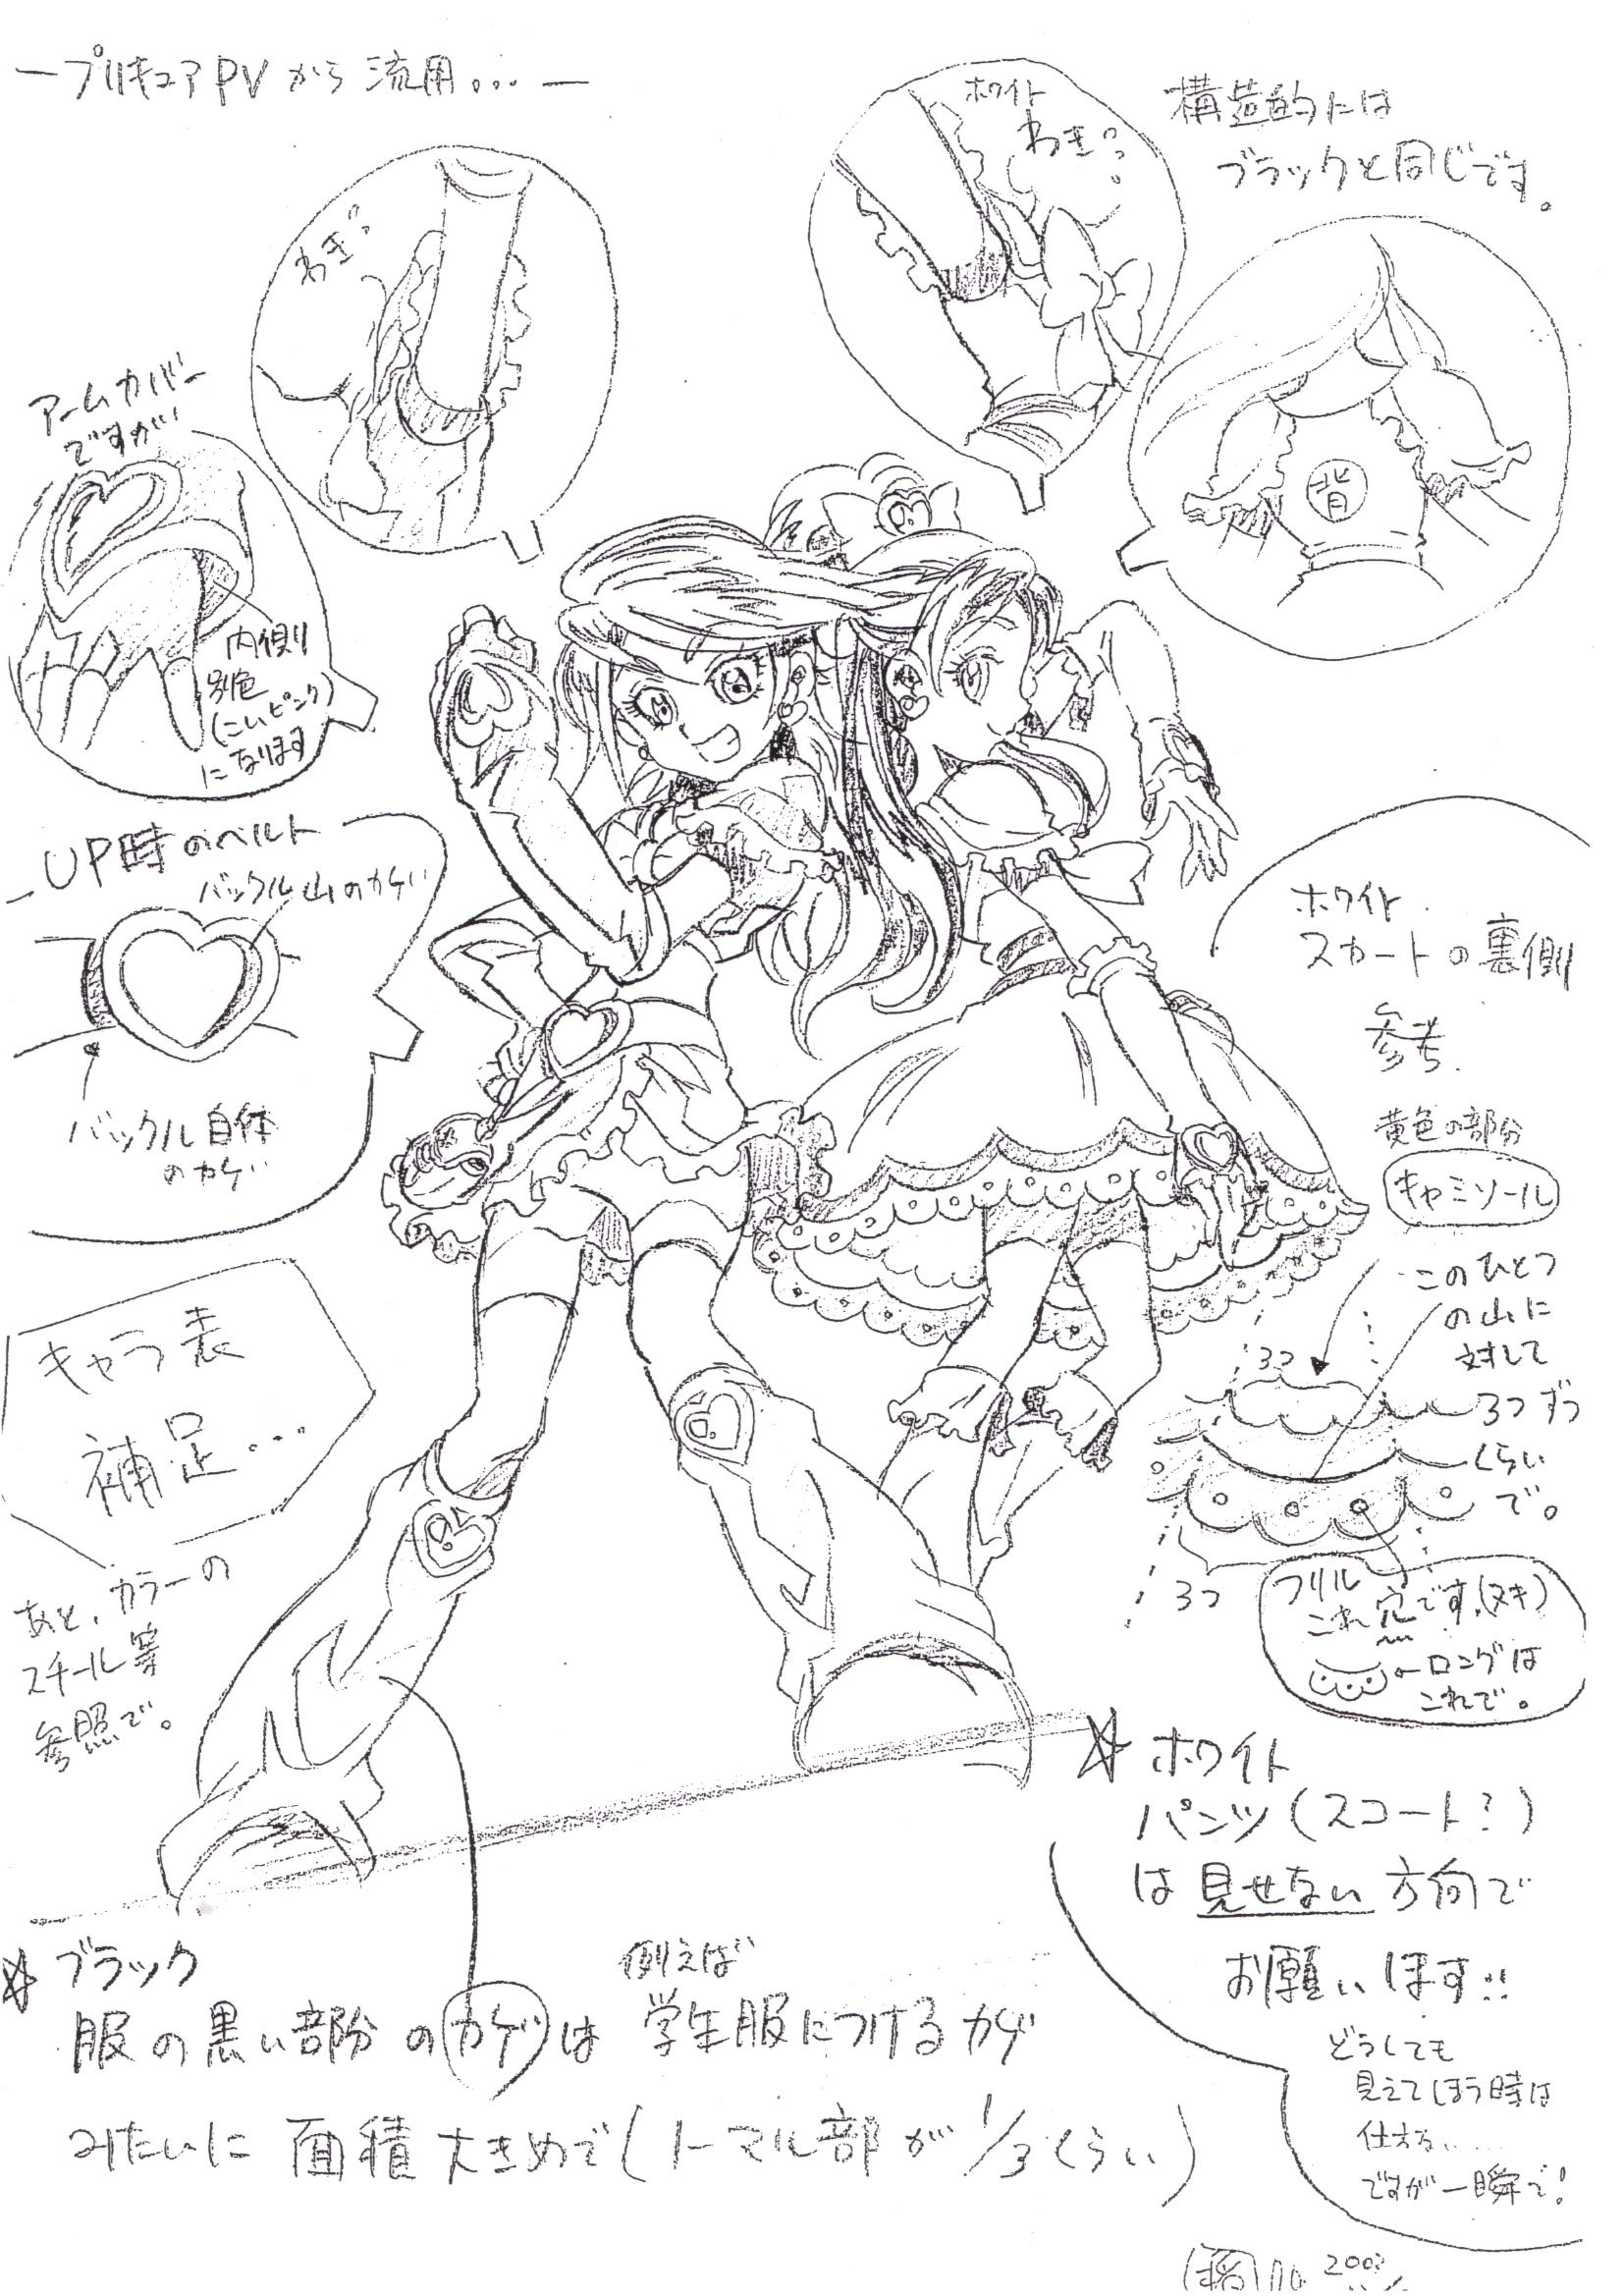 ープリキュアPVから流用...ー
ホワイト
わき…
構造的には
ブラックと同じです。
わき…
背
アームカバー
ですが
内側
別色
(こいピンク)
になります
UP時のベルト
バックル山のカゲ
バックル自体
のカゲ
ホワイト
スカートの裏側
参考
黄色の部分
キャミソール
このひとつ
の山に
対して
3つずつ
くらい
で。
3つ
3つ
フリル
これ穴です。(ヌキ)
←ロングは
これで。
キャラ表
補足...
あと、カラーの
スチール等
参照で。
☆ホワイト
パンツ(スコート?)
は見せない方向で
お願いします!!
どうしても
見えてしまう時は
仕方ない……
ですが一瞬で!
☆ブラック
服の黒い部分のカゲは例えば学生服につけるカゲ
みたいに面積大きめで(ノーマル部が1/3くらい)